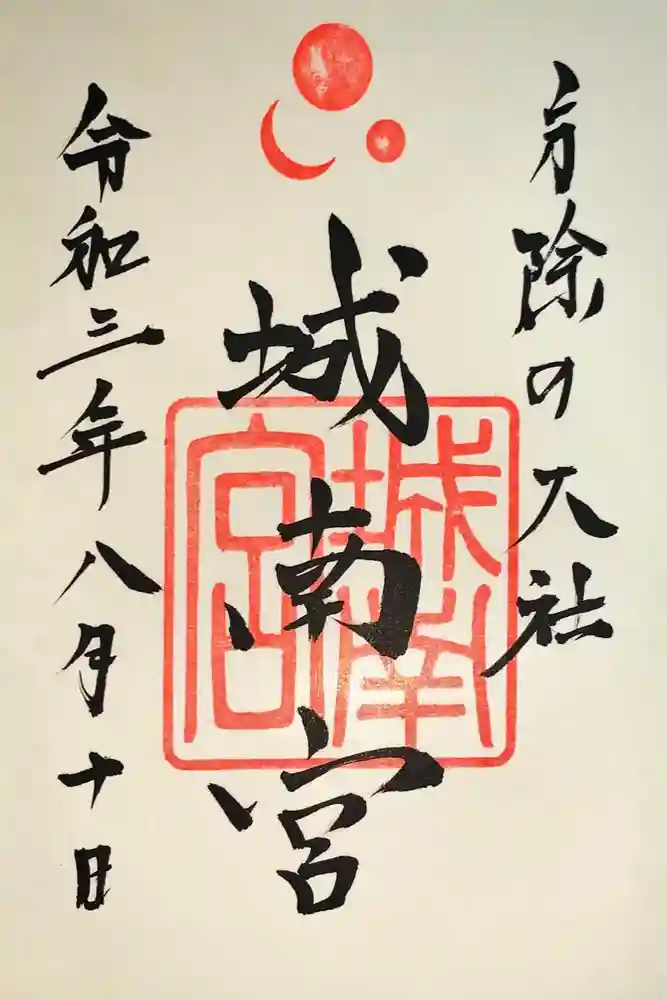 方除の大社
城南宮
城南宮
令和三年八月十日